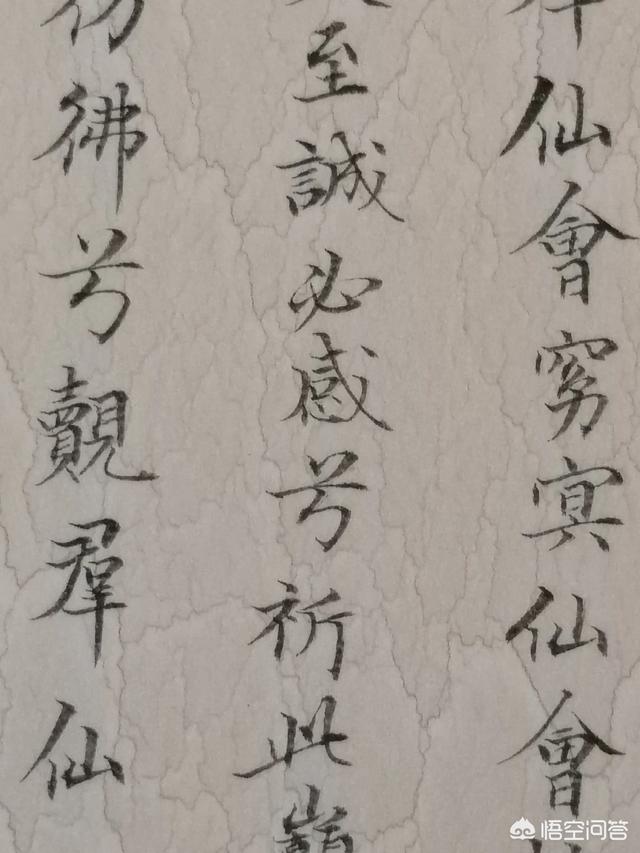 仙會窈冥仙會
至誠必感兮祈此巔
彷彿兮覿羣仙
悟空问答